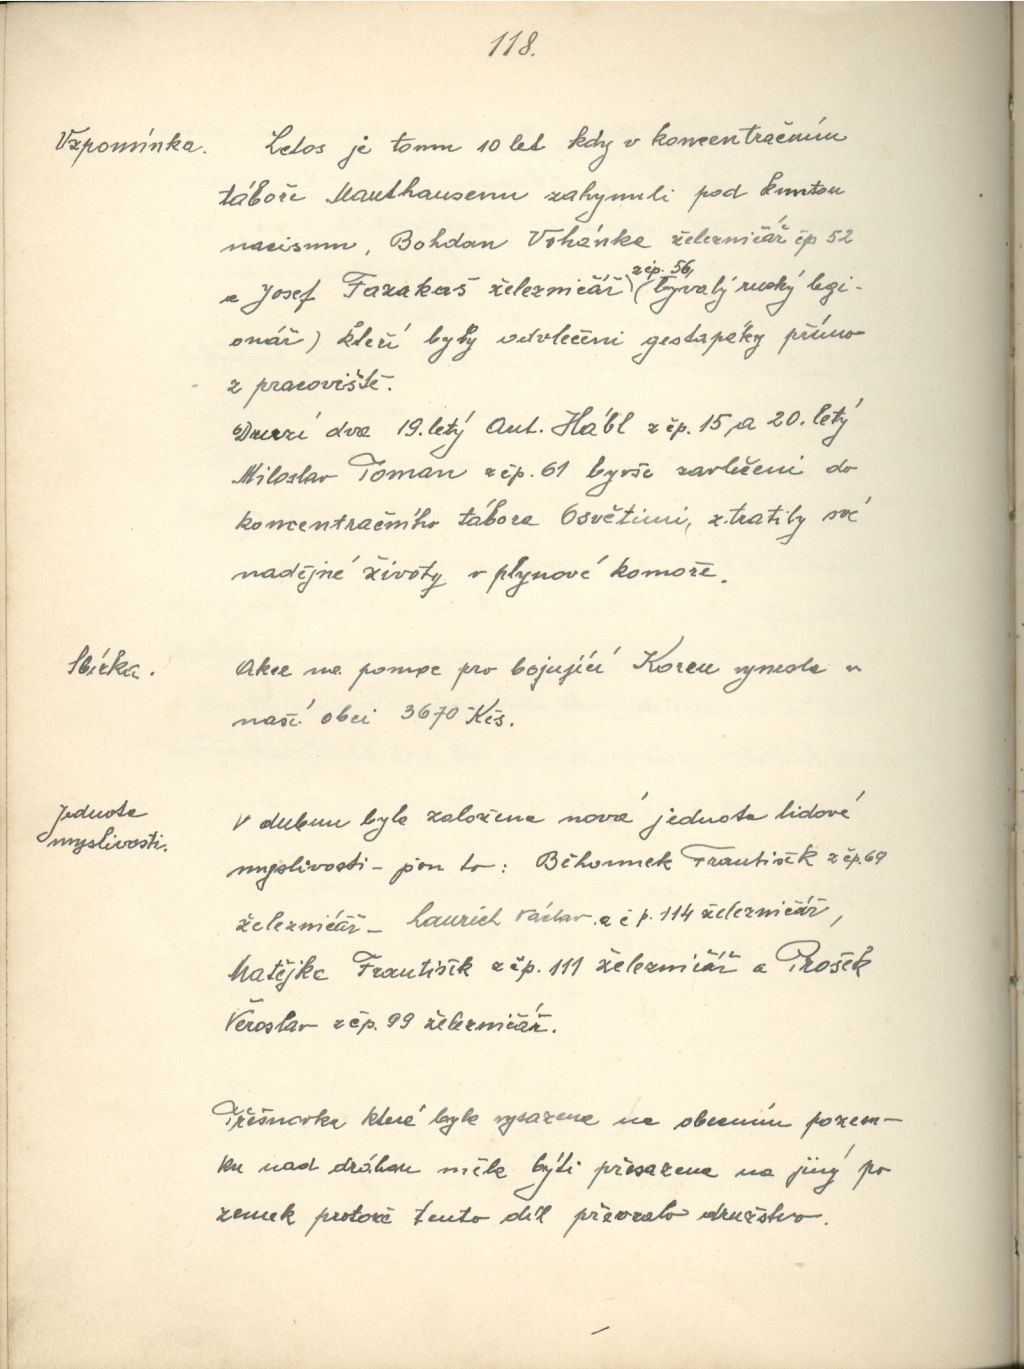 118.
Vzpomínka. Letos je tomu 10 let kdy v koncentračním
táboře Mauthausenu zahynuli pod knutou
nacismu, Bohdan Vohánka železničář čp 52
a Josef Fazakaš železničář z čp. 56, (bývalý ruský legi-
onář) kteří byly odvlečeni gestapáky přímo
z pracoviště.
Druzí dva 19. letý Ant. Hábl z čp. 15, a 20. letý
Miloslav Toman z čp. 61 byvše zavlečeni do
koncentračního tábora Osvětimi, ztratily své
nadějné životy v plynové komoře.
Sbírka. Akce na pomoc pro bojující Koreu vynesla v
naší obci 3670 Kčs.
Jednota
myslivosti.
V dubnu byla založena nová jednota lidové
myslivosti - jsou to: Běhounek František z čp. 69
železničář - Laurich Václav z č p. 114 železničář,
Matějka František z čp. 111 železničář a Prošek
Věroslav z čp. 99 železničář.
Třešňovka které byla vysazena na obecním pozem-
ku nad dráhou měla býti přesazena na jiný po
zemek protože tento díl převzalo družstvo.